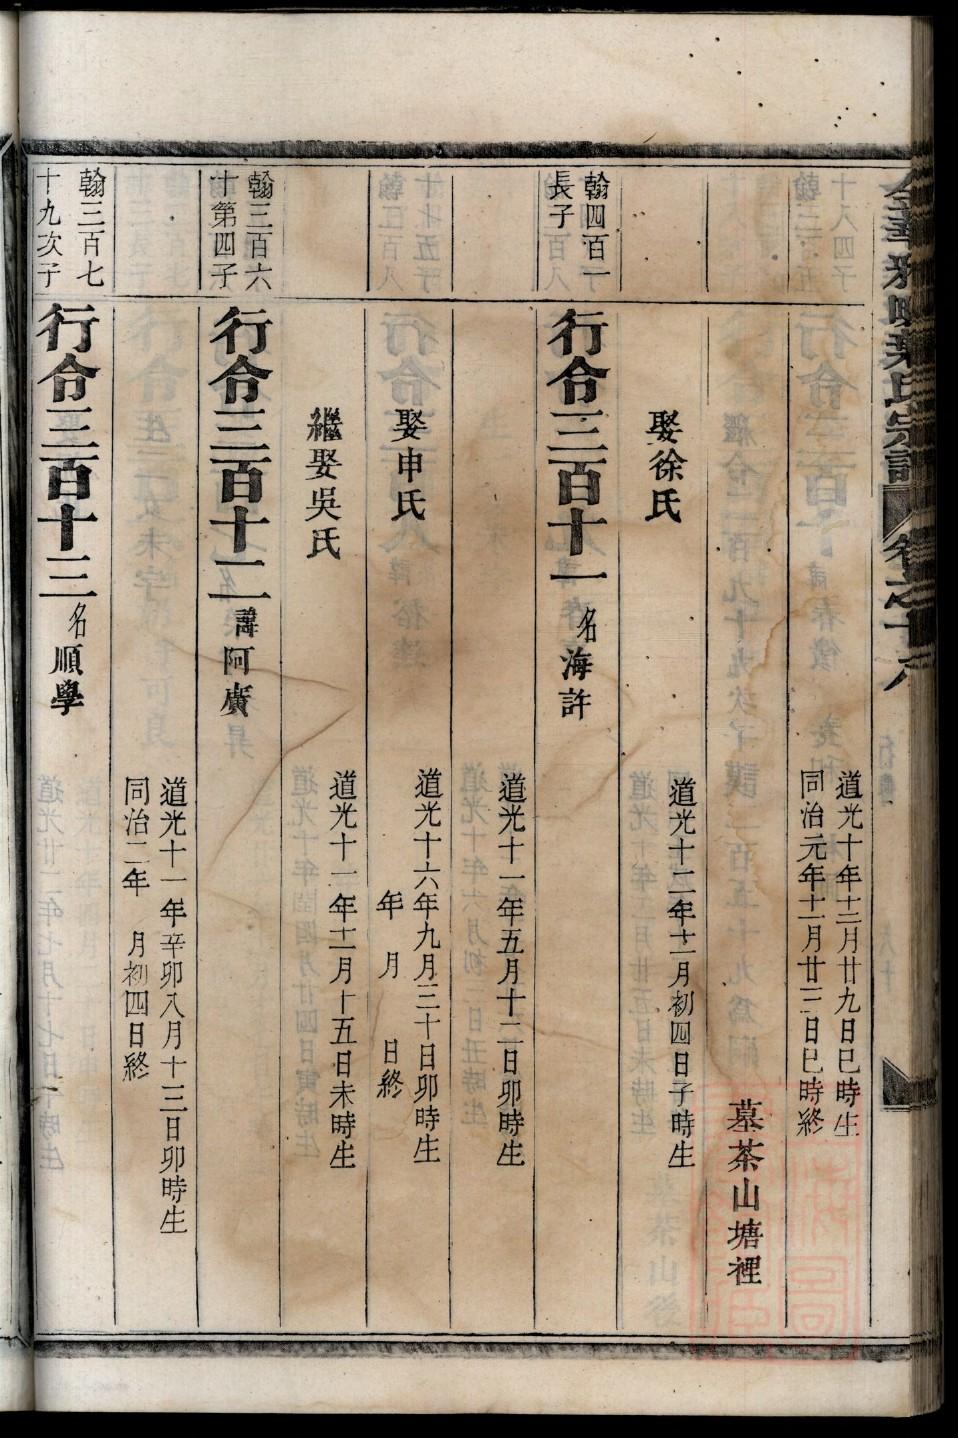 道光十年十二月廿九日巳時生
同治元年十二月廿三日巳時終
墓茶山塘裡
娶徐氏
道光十二年十二月初四日子時生
翰四百一
長子
行令三百十一
名海許
道光十一年五月十二日卯時生
娶申氏
道光十六年九月三十日卯時生
年　月　日終
繼娶吳氏
道光十一年十二月十五日未時生
翰三百六
十第四子
行令三百十二
諱阿廣
道光十一年辛卯八月十三日卯時生
同治二年　月初四日終
翰三百七
十九次子
行令三百十三
名順學